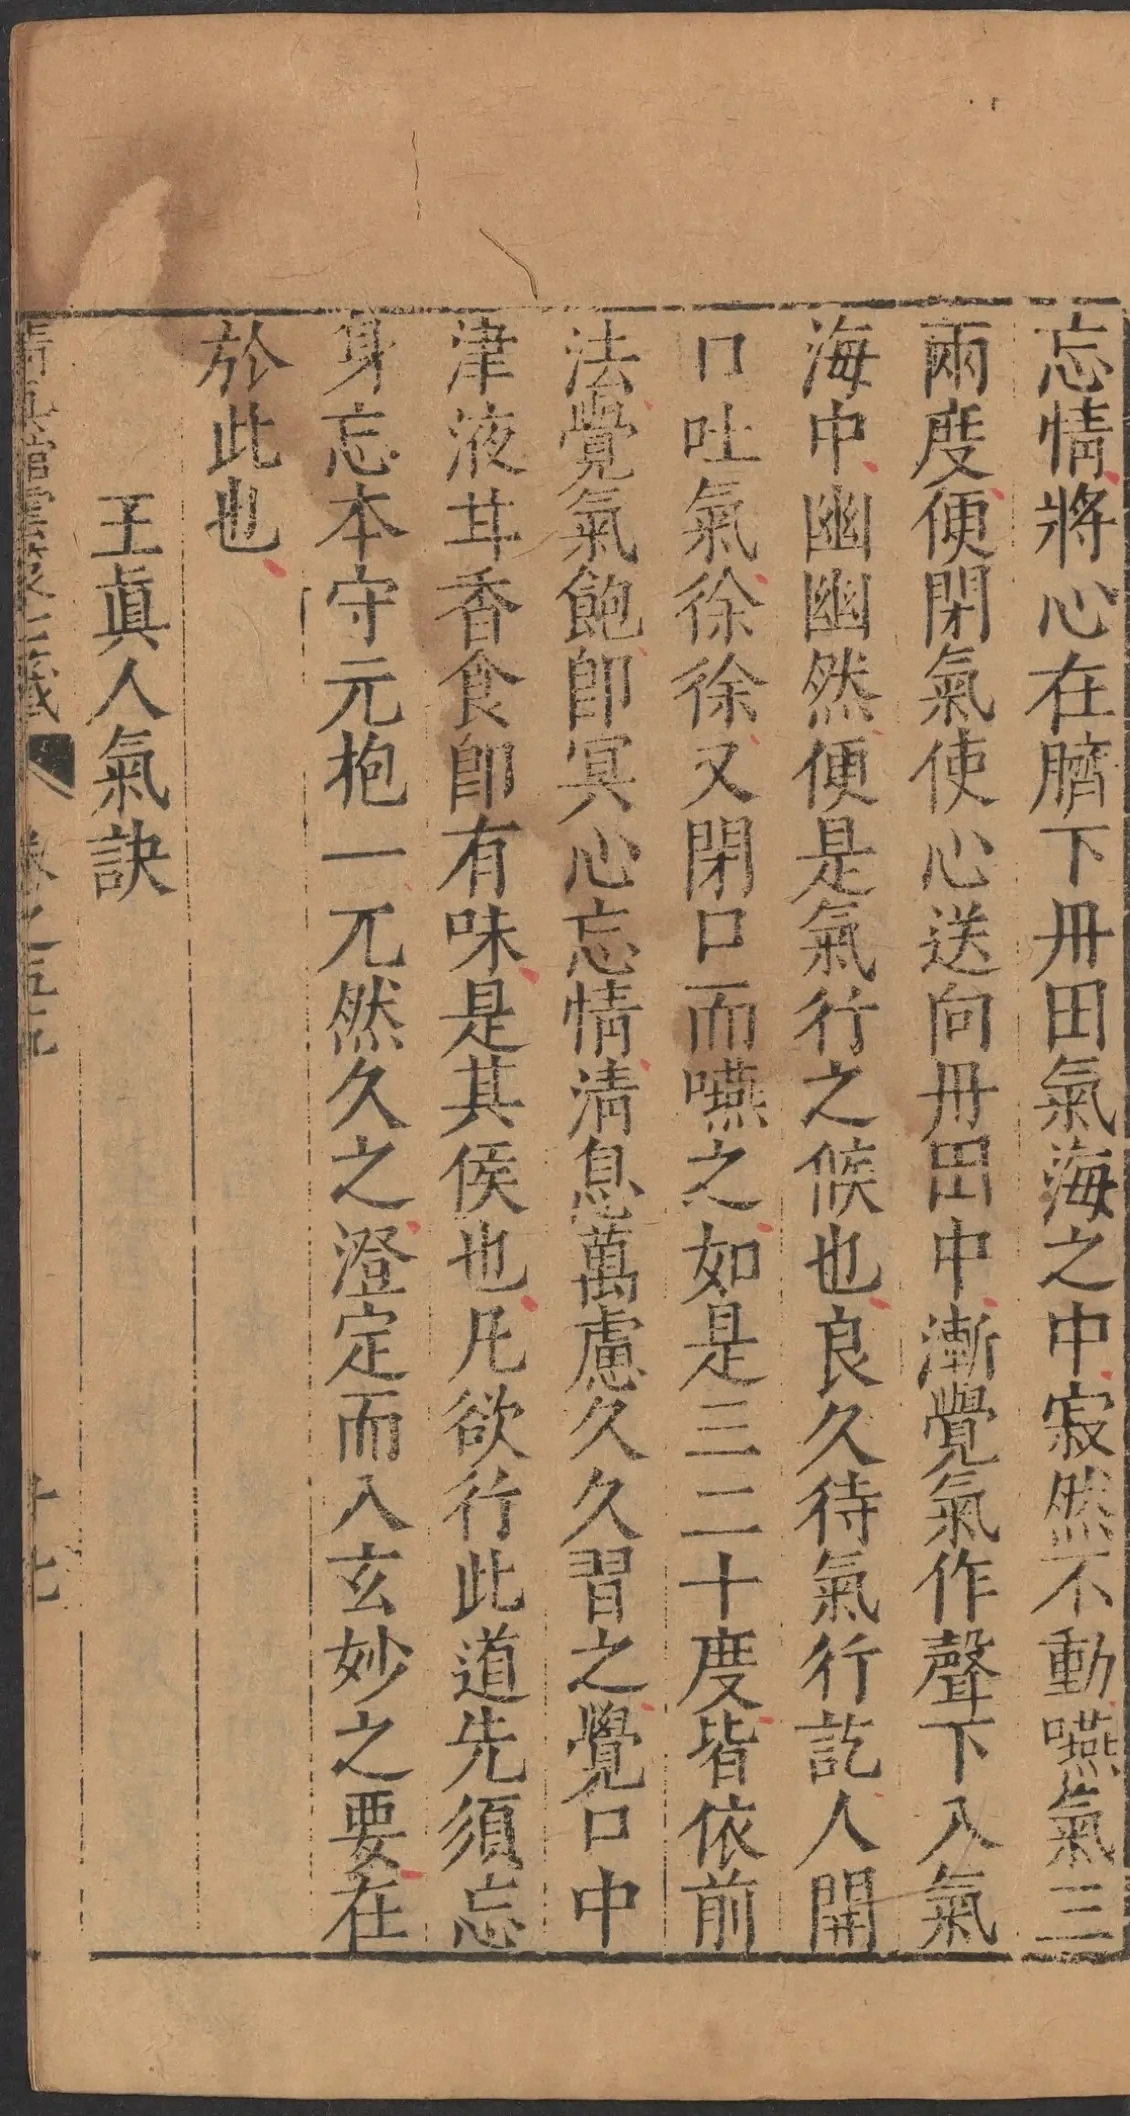 忘情將心在臍下丹田氣海之中寂然不動嚥氣三
兩度便閉氣使心送向丹田中漸覺氣作聲下入氣
海中幽幽然便是氣行之候也良久待氣行訖人開
口吐氣徐徐又閉口而嚥之如是三二十度皆依前
法覺氣飽即冥心忘情清息萬慮久久習之覺口中
津液甘香食即有味是其侯也凡欲行此道先須忘
身忘本守元抱一兀然久之澄定而入玄妙之要在
於此也
王眞人氣訣